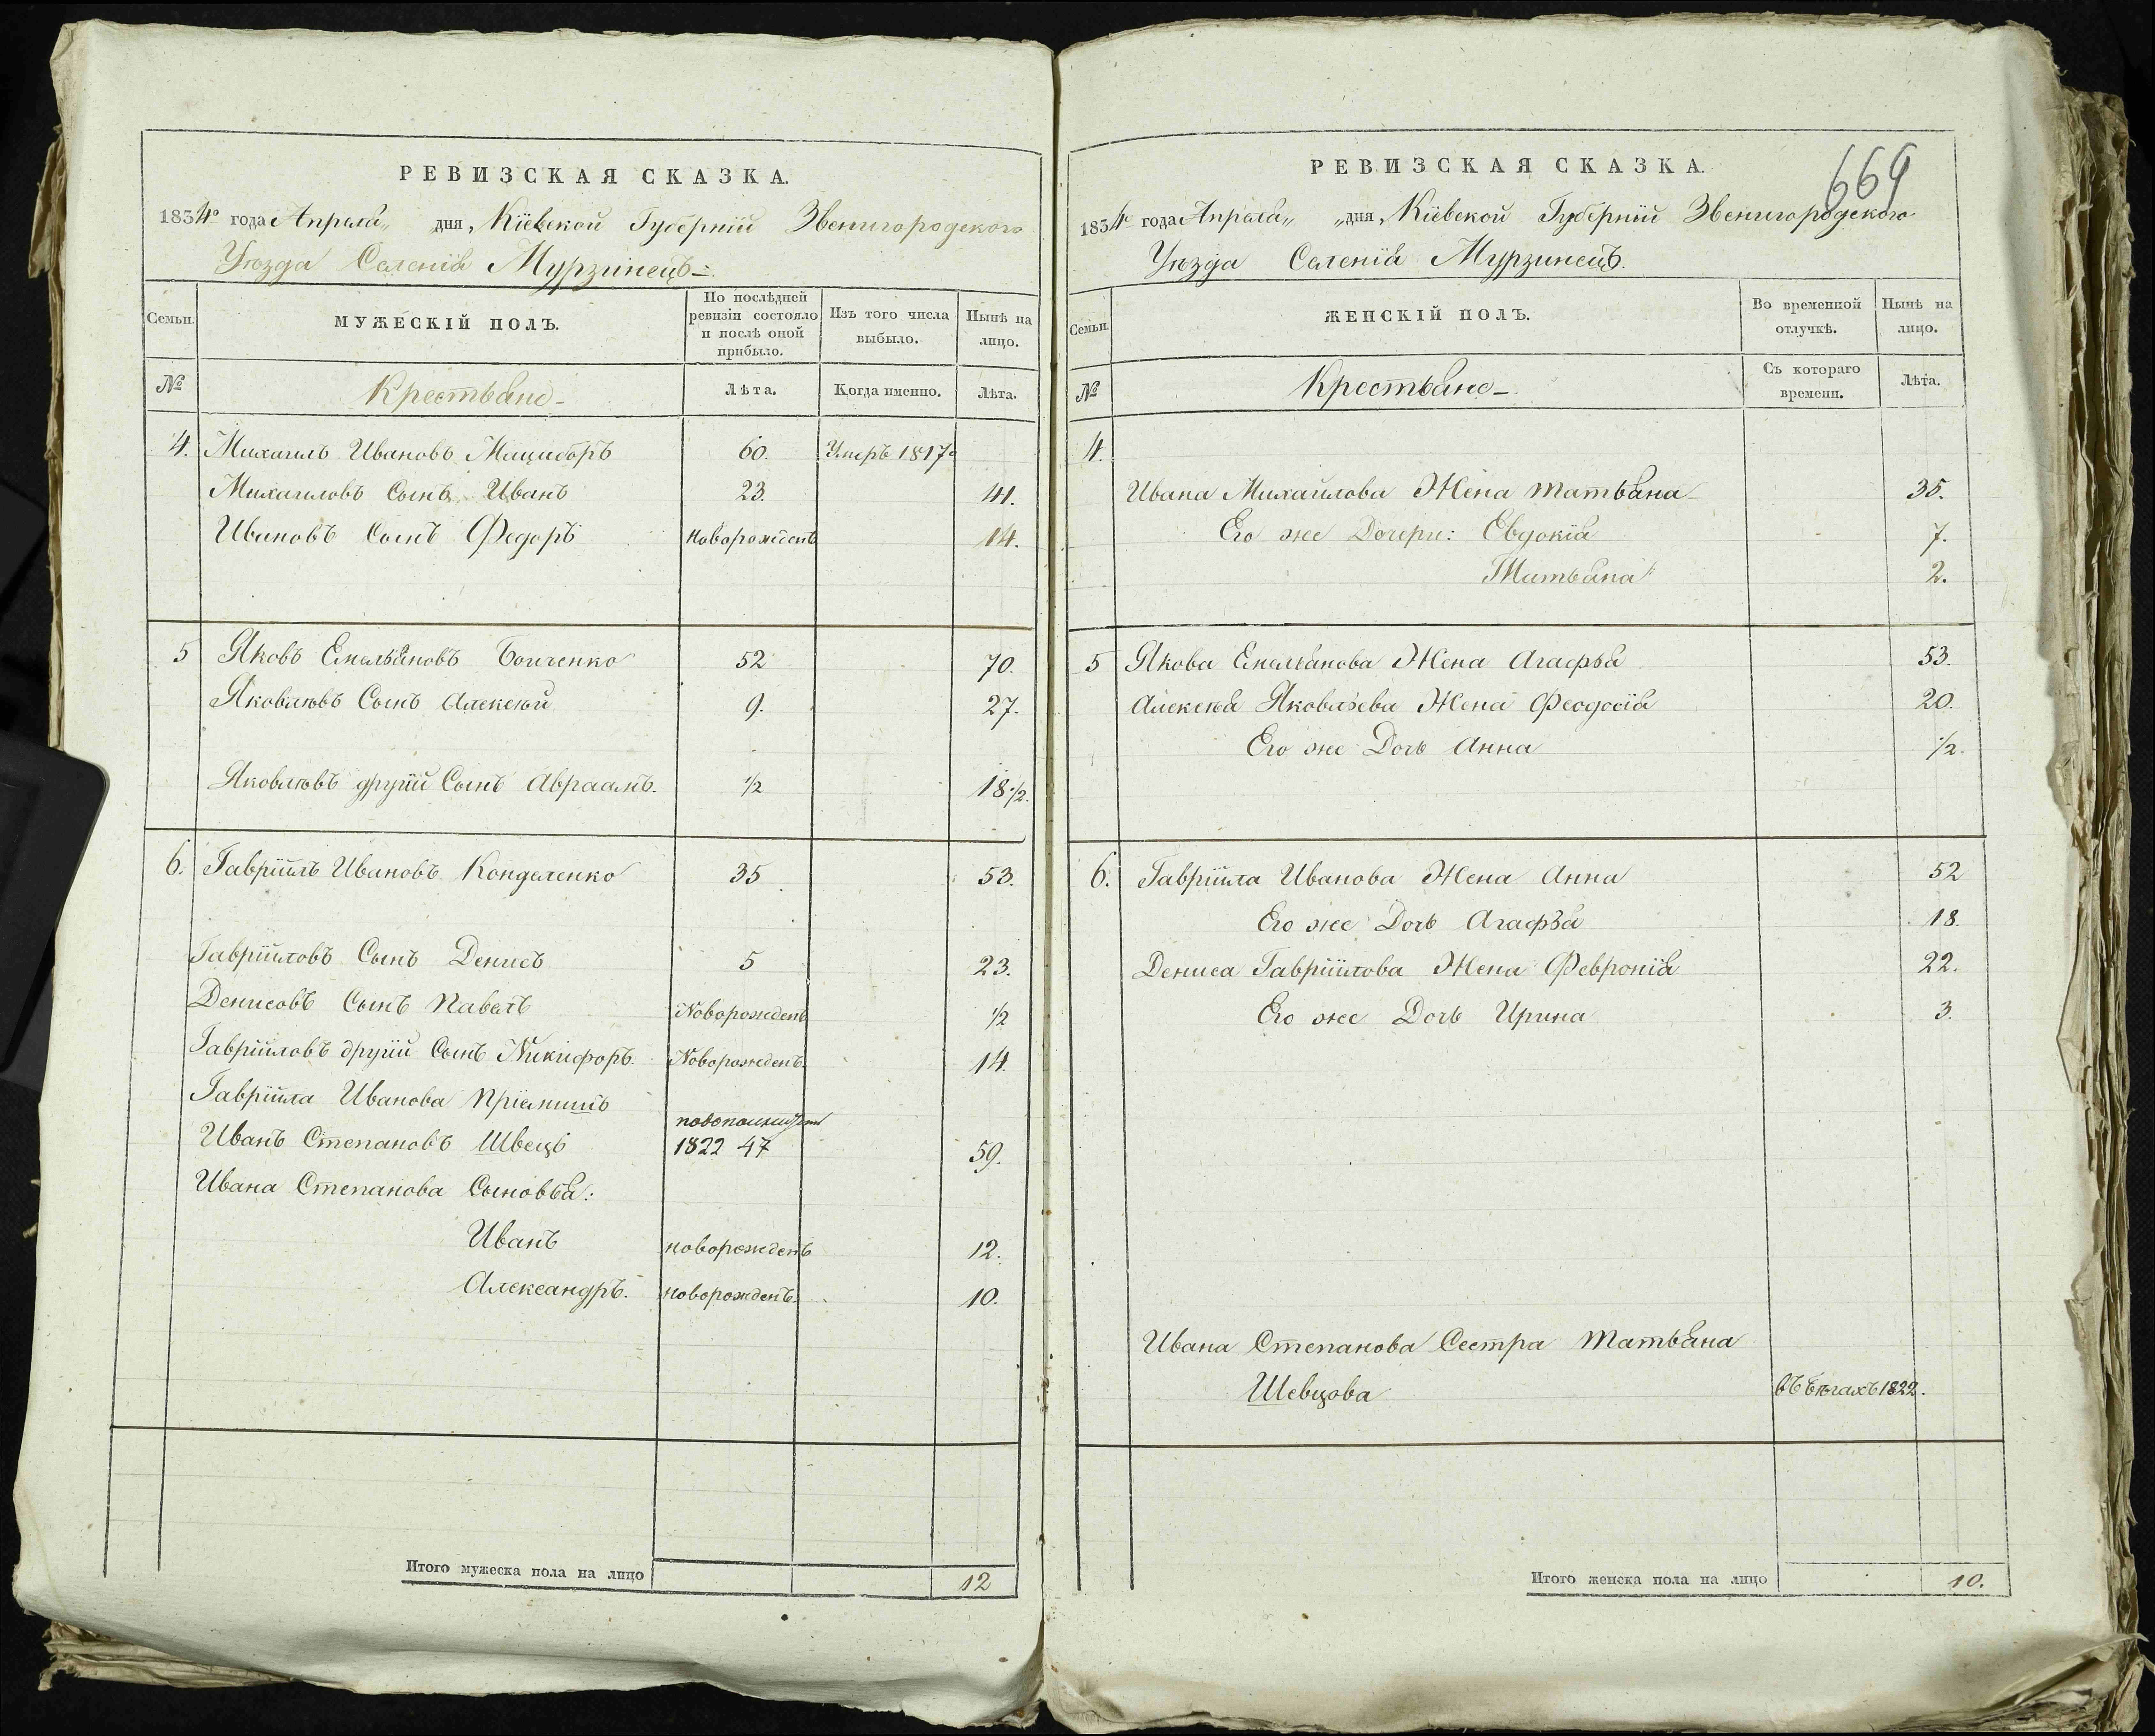 РЕВИЗСКАЯ СКАЗКА.
1834го года Апреля „ дня, Кіевской Губерніи Звенигородского
Уѣзда Селенія Мурзинецъ
Семьи.
МУЖЕСКІЙ ПОЛЪ.
По послѣдней ревизіи состояло и послѣ оной прибыло.
Изъ того числа выбыло.
Нынѣ на лицо.
№
Крестьяне
Лѣта.
Когда именно.
Лѣта.
4. Михаилъ Ивановъ Мациборъ 60. Умеръ 1817го
Михаиловъ Сынъ Иванъ 23. 41.
Ивановъ Сынъ Федоръ новорожденъ 14.
5 Яковъ Емельяновъ Бойченко 52 70.
Яковлѣвъ Сынъ Алексѣй 9. 27.
Яковлѣвъ другій Сынъ Авраамъ. 1/2 18 1/2.
6. Гавріилъ Ивановъ Кондаленко 35 53.
Гавріиловъ Сынъ Денисъ 5 23.
Денисовъ Сынъ Павелъ Новорожденъ 1/2
Гавріиловъ другій Сынъ Никифоръ. Новорожденъ. 14.
Гавріила Иванова Пріемишъ
Иванъ Степановъ Швецъ 1822 47 59.
Ивана Степанова Сыновья:
Иванъ новорожденъ 12.
Александръ. новорожденъ. 10.
Итого мужеска пола на лицо 12
РЕВИЗСКАЯ СКАЗКА.
669
1834го года Апреля „ „ дня, Кіевской Губерніи Звенигородского
Уѣзда Селенія Мурзинецъ.
Семьи.
ЖЕНСКІЙ ПОЛЪ.
Во временной отлучкѣ.
Нынѣ на лицо.
№
Крестьяне
Съ котораго времени.
Лѣта.
4.
Ивана Михайлова Жена Татьяна 35.
Его же Дочери: Евдокія 7.
Татьяна 2.
5 Якова Емельянова Жена Агафья 53.
Алексѣя Яковлѣва Жена Феодосія 20.
Его же Дочь Анна 1/2.
6. Гавріила Иванова Жена Анна 52
Его же Дочь Агафья 18.
Дениса Гавріилова Жена Февронія 22.
Его же Дочь Ирина 3.
Ивана Степанова Сестра Татьяна
Шевцова въ бѣгахъ 1822.
Итого женска пола на лицо 10.